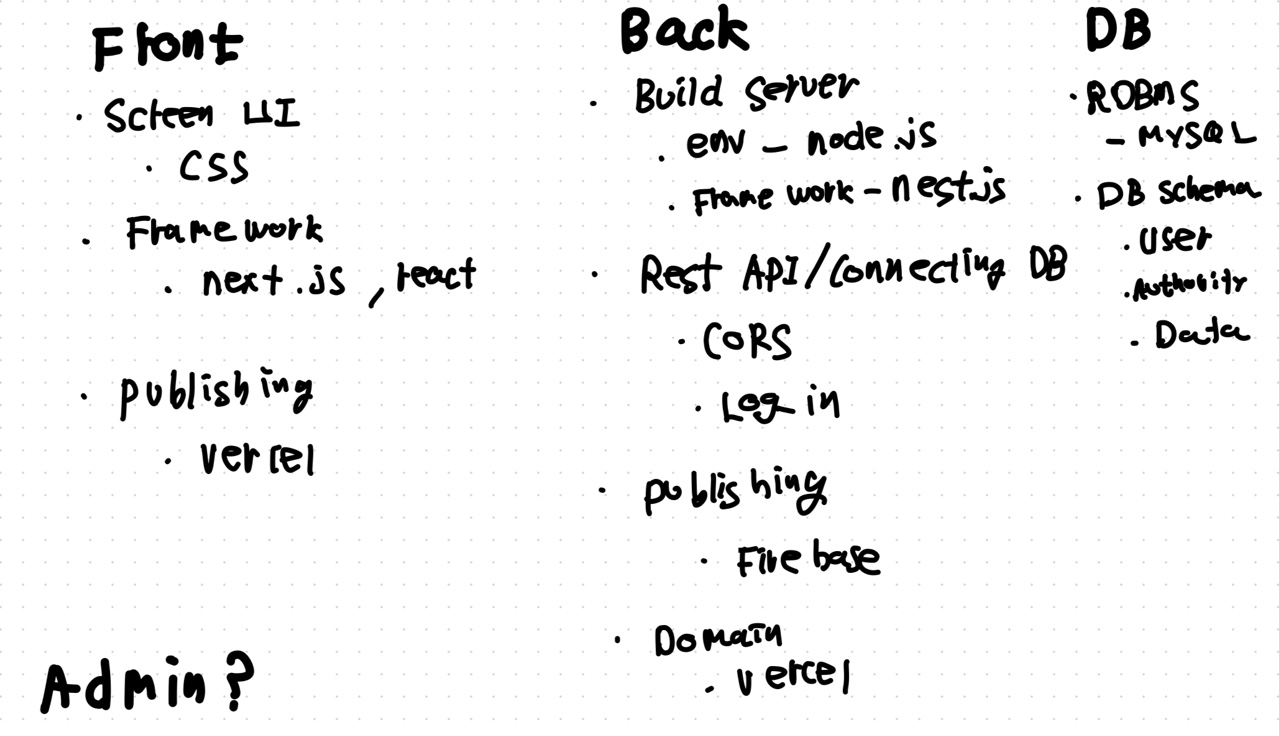 Front
· Screen UI
· CSS
· Framework
· next.js, react
· publishing
· vercel
Admin?
Back
· Build server
· env - node.js
· Frame work - nest.js
· Rest API/Connecting DB
· CORS
· Log in
· publishing
· Fire base
· Domain
· vercel
DB
· RDBMS
- MYSQL
· DB schema
· User
· Authority
· Data